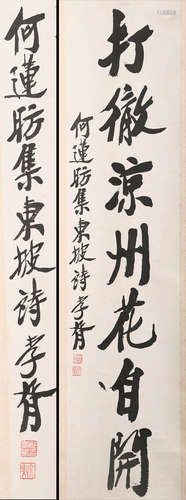 打徹涼州花自開
何蓮昉集東坡詩孝胥
何蓮昉集東坡詩孝胥